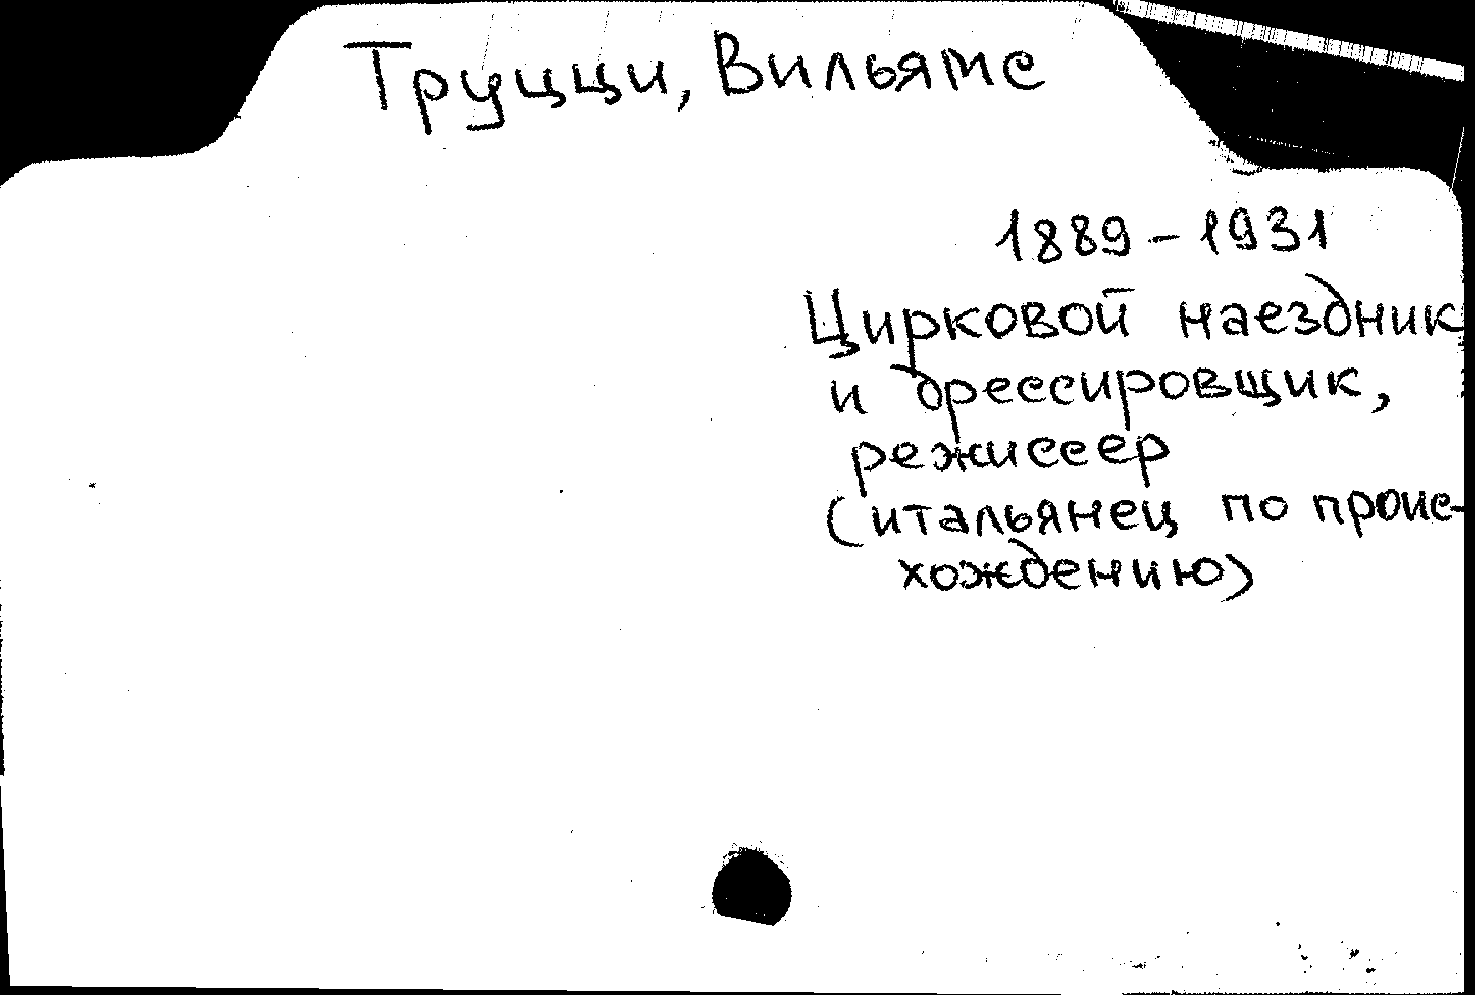 Труцци, Вильямс
1889-1931
Цирковой наездник
и дрессировщик,
режиссер
(итальянец по проис-
хождению)